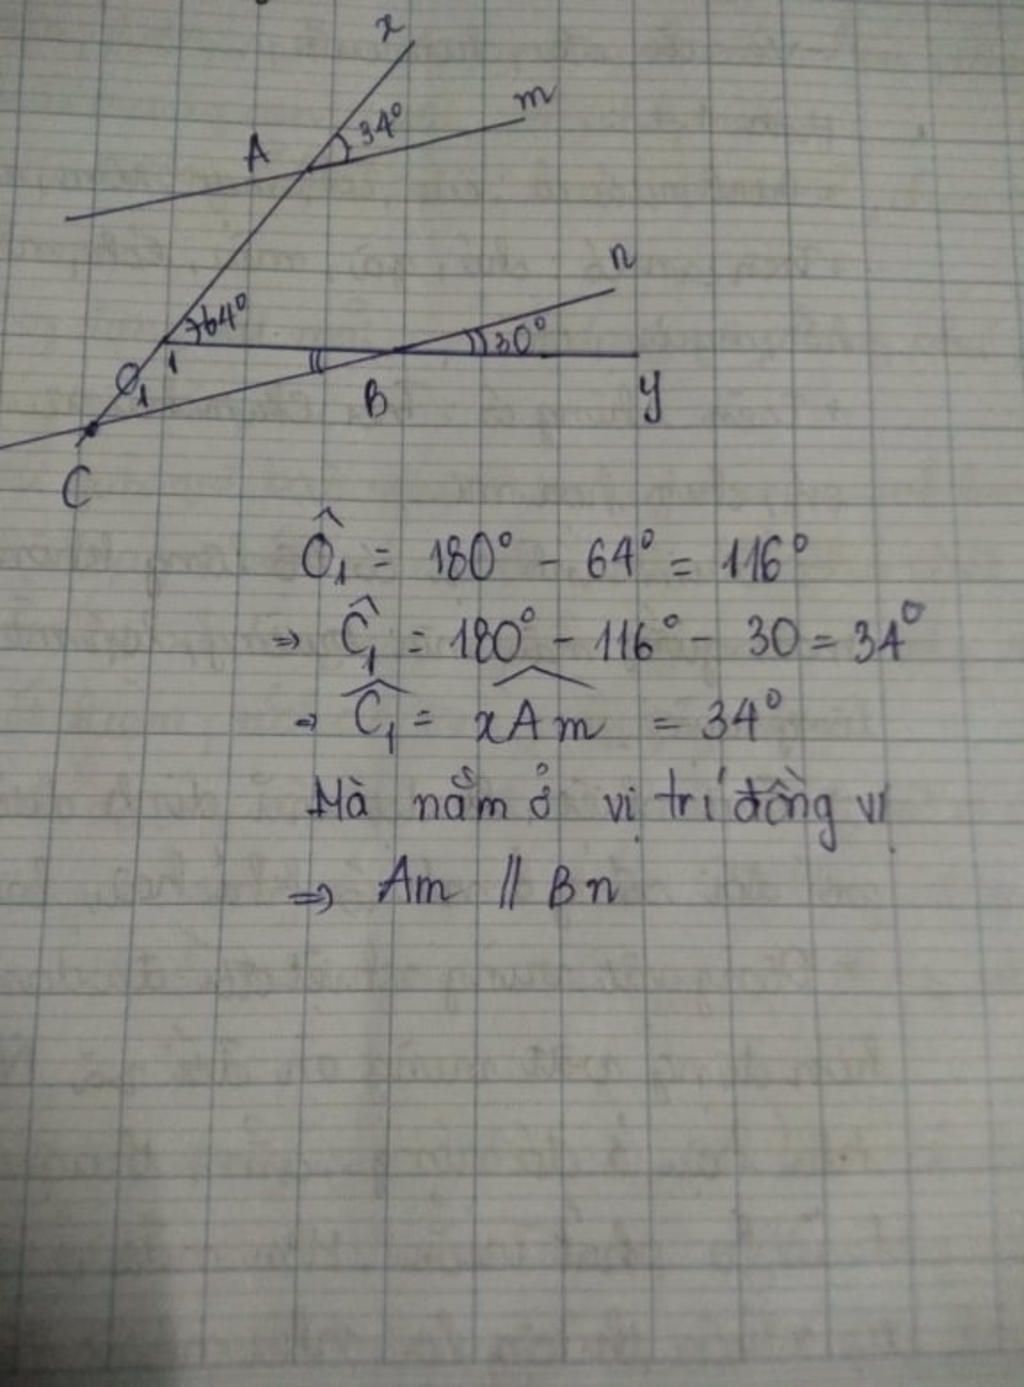 x
m
34°
A
n
64°
30°
O
1
1
B
y
C
Ô₁ = 180° - 64° = 116°
⇒ Ĉ₁ = 180° - 116° - 30 = 34°
⇒ Ĉ₁ = xAm = 34°
Mà nằm ở vị trí đồng vị
⇒ Am // Bn